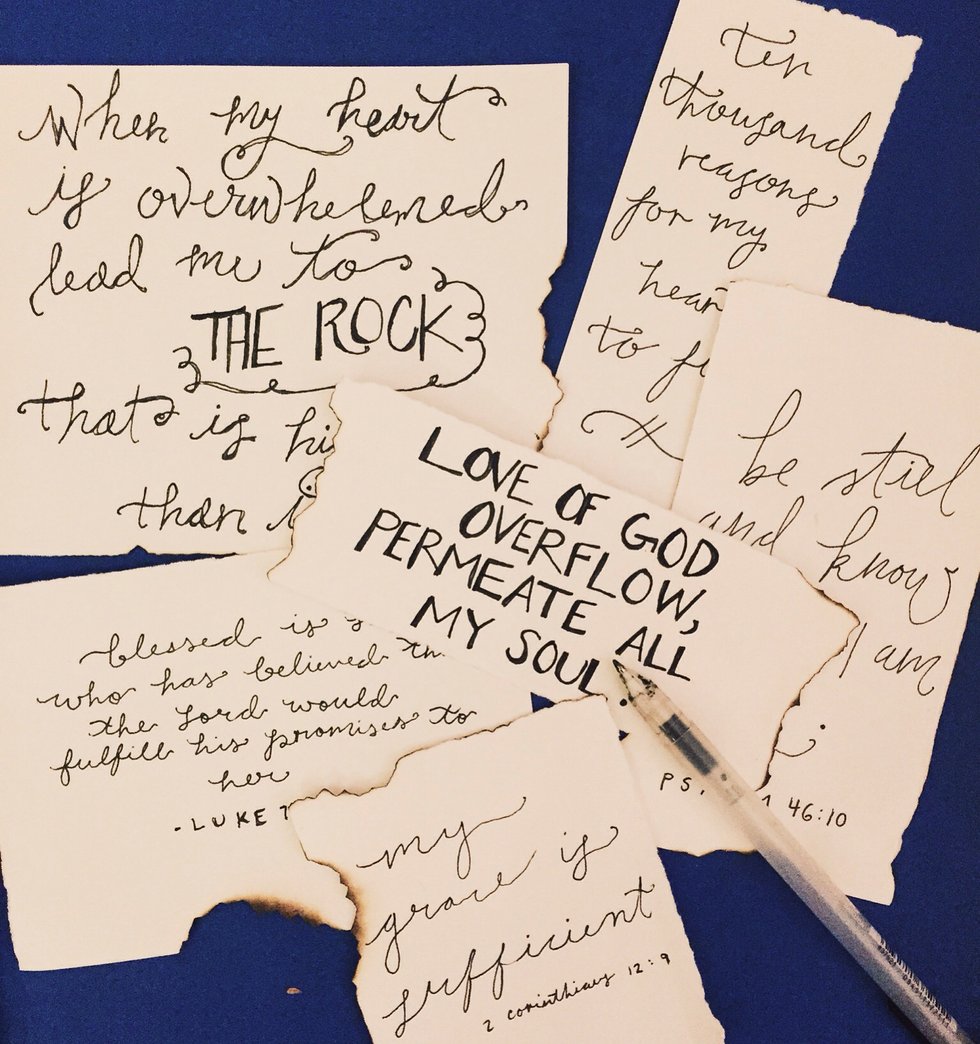 When my heart
is overwhelemed
lead me to
THE ROCK
that is
than
ten
thousand
reasons
for my
to
be still
and know
I am
PS. 46:10
LOVE OF GOD
OVERFLOW,
PERMEATE ALL
MY SOUL.
blessed is
who has believed
the Lord would
fulfill his promises to
her
-LUKE
my
grace is
sufficient
2 corinthians 12:9